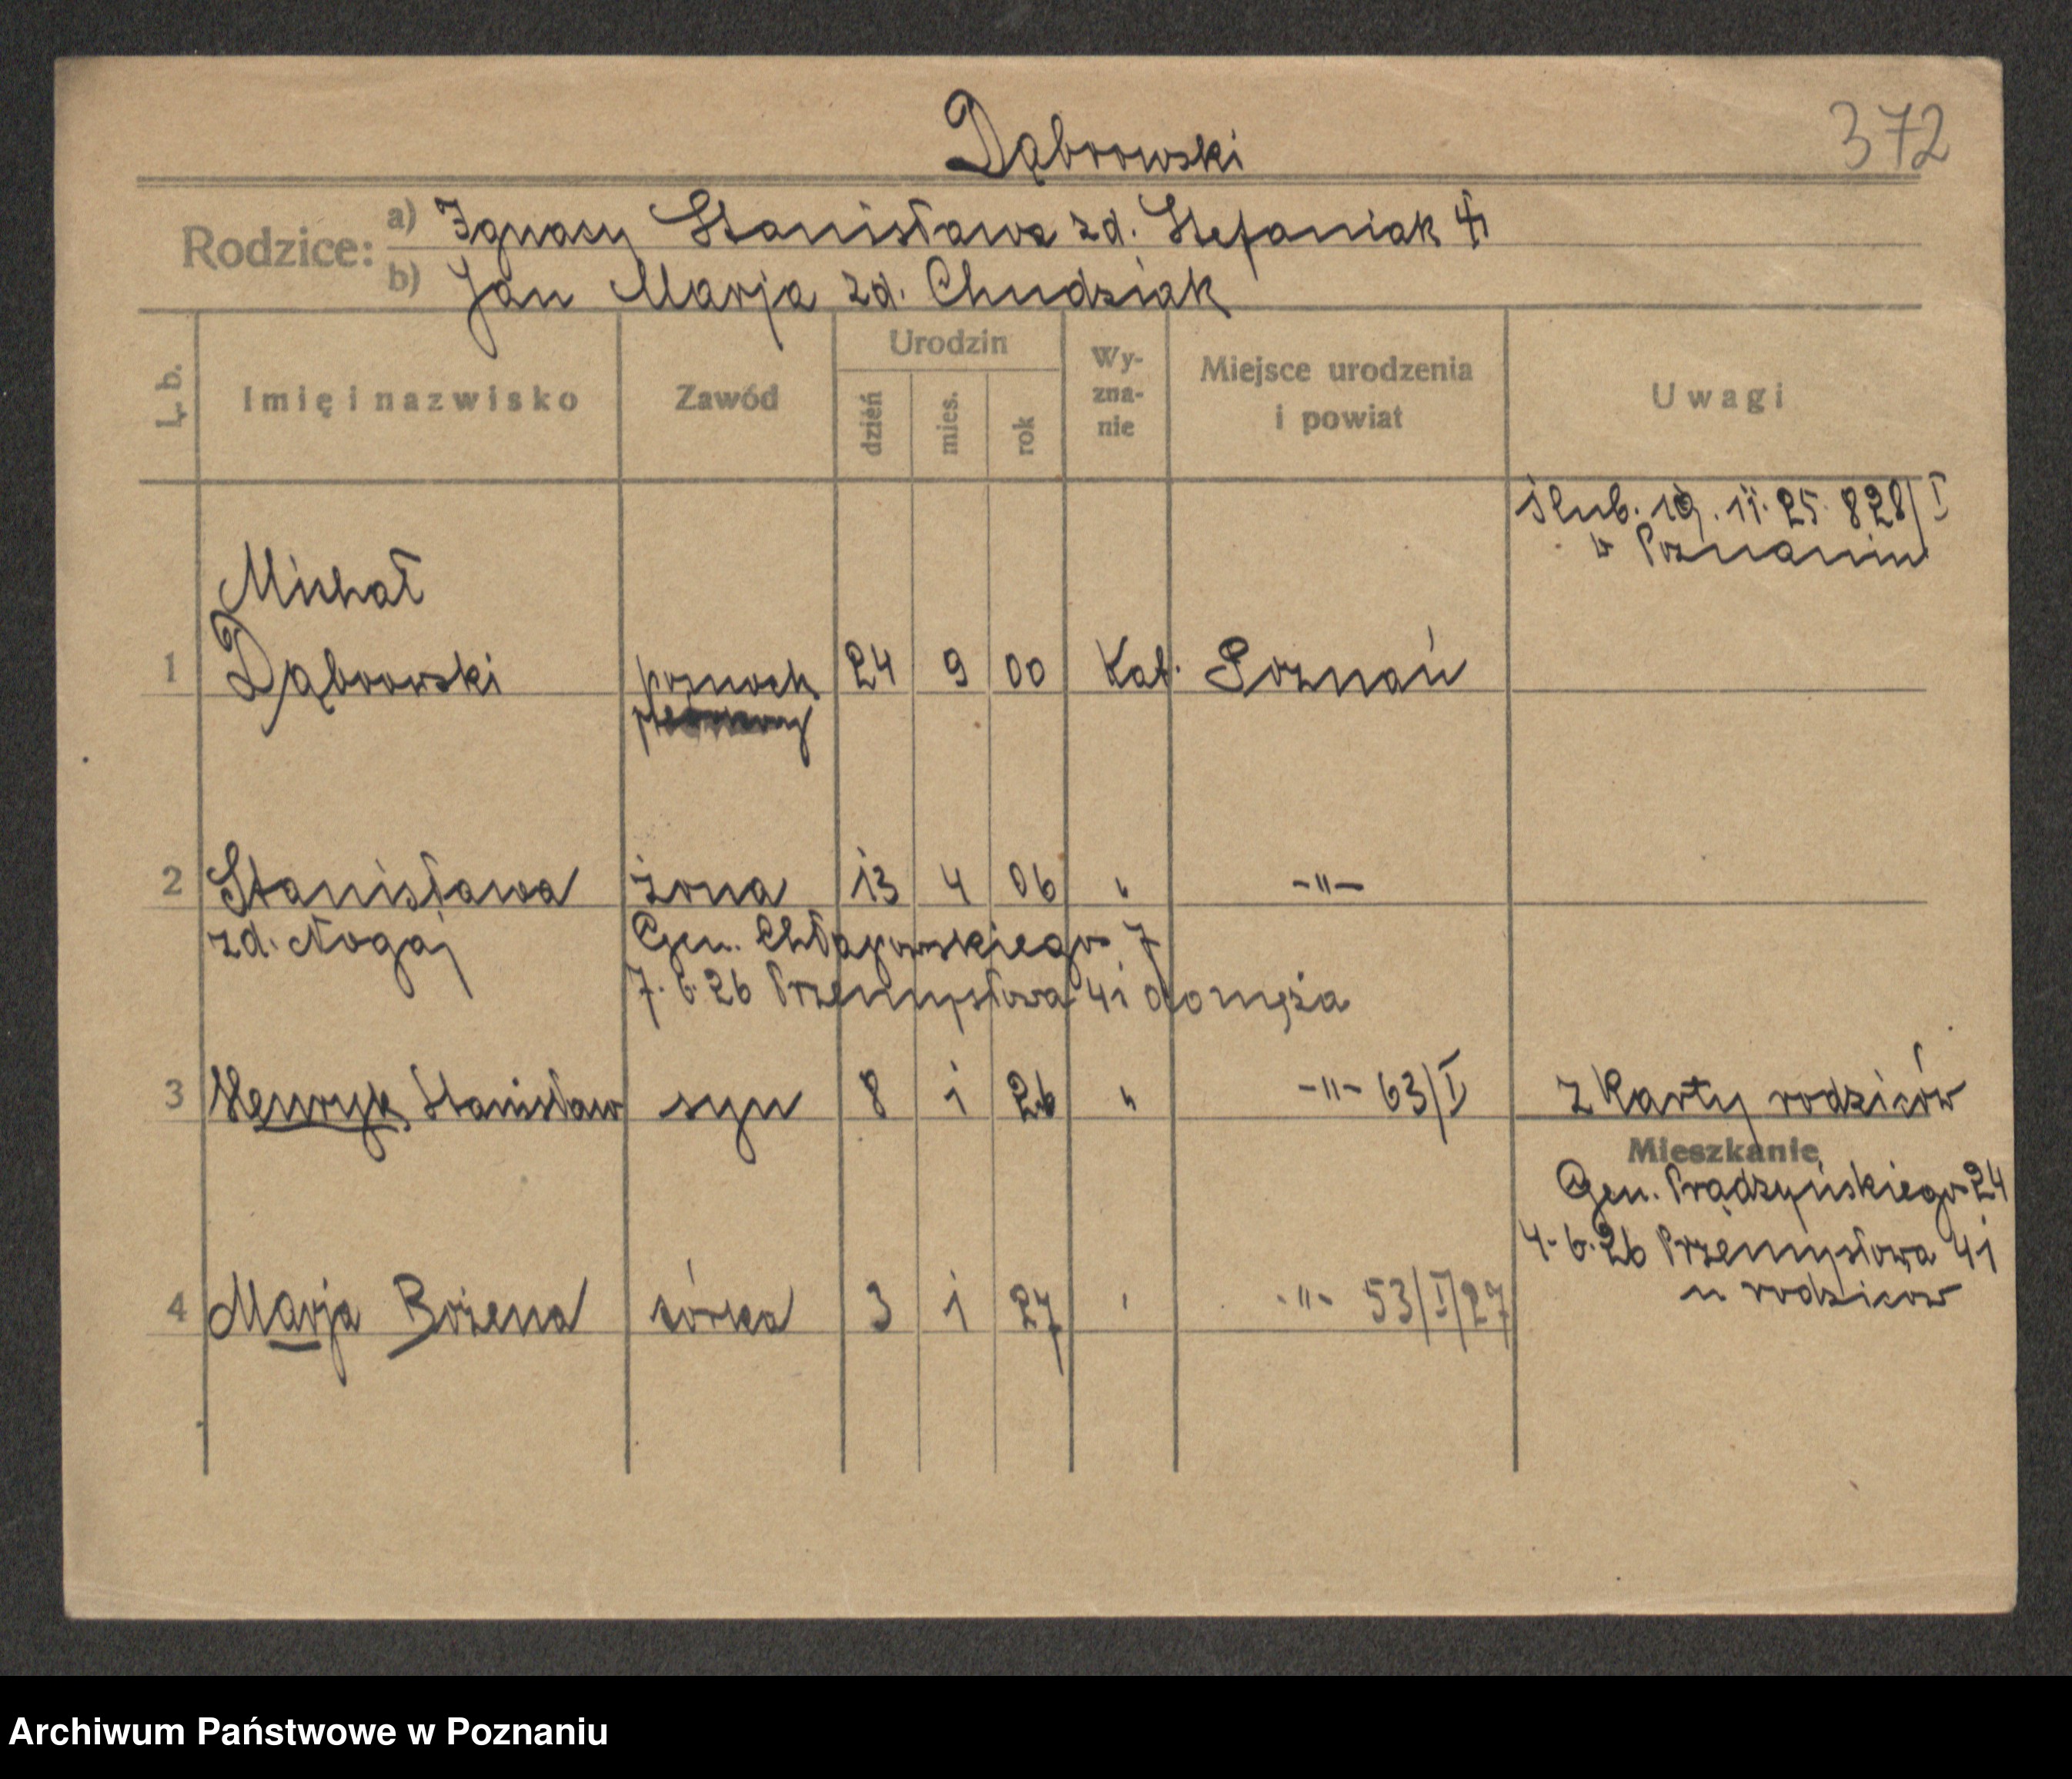 Dąbrowski
372
Rodzice:
a) Ignacy Stanisława zd. Stefaniak
b) Jan Marja zd. Chudziak
L. b.
Imię i nazwisko
Zawód
Urodzin
dzień
mies.
rok
Wy-
zna-
nie
Miejsce urodzenia
i powiat
Uwagi
ślub. 19. 11. 25. 828/I
w Poznaniu
Michał
1 Dąbrowski 24 9 00 Kat. Poznań
2 Stanisława żona 13 4 06 " -"-
zd. Nogaj Gen. Chłapowskiego 7
7. 6. 26 Przemysłowa 41 do męża
3 Henryk, Stanisław syn 8 1 26 " -"- 63/I z Karty rodziców
Mieszkanie
Gen. Prądzyńskiego 24
4. 6. 26 Przemysłowa 41
u rodziców
4 Marja Bożena córka 3 1 27 ' -"- 53/I/27
Archiwum Państwowe w Poznaniu